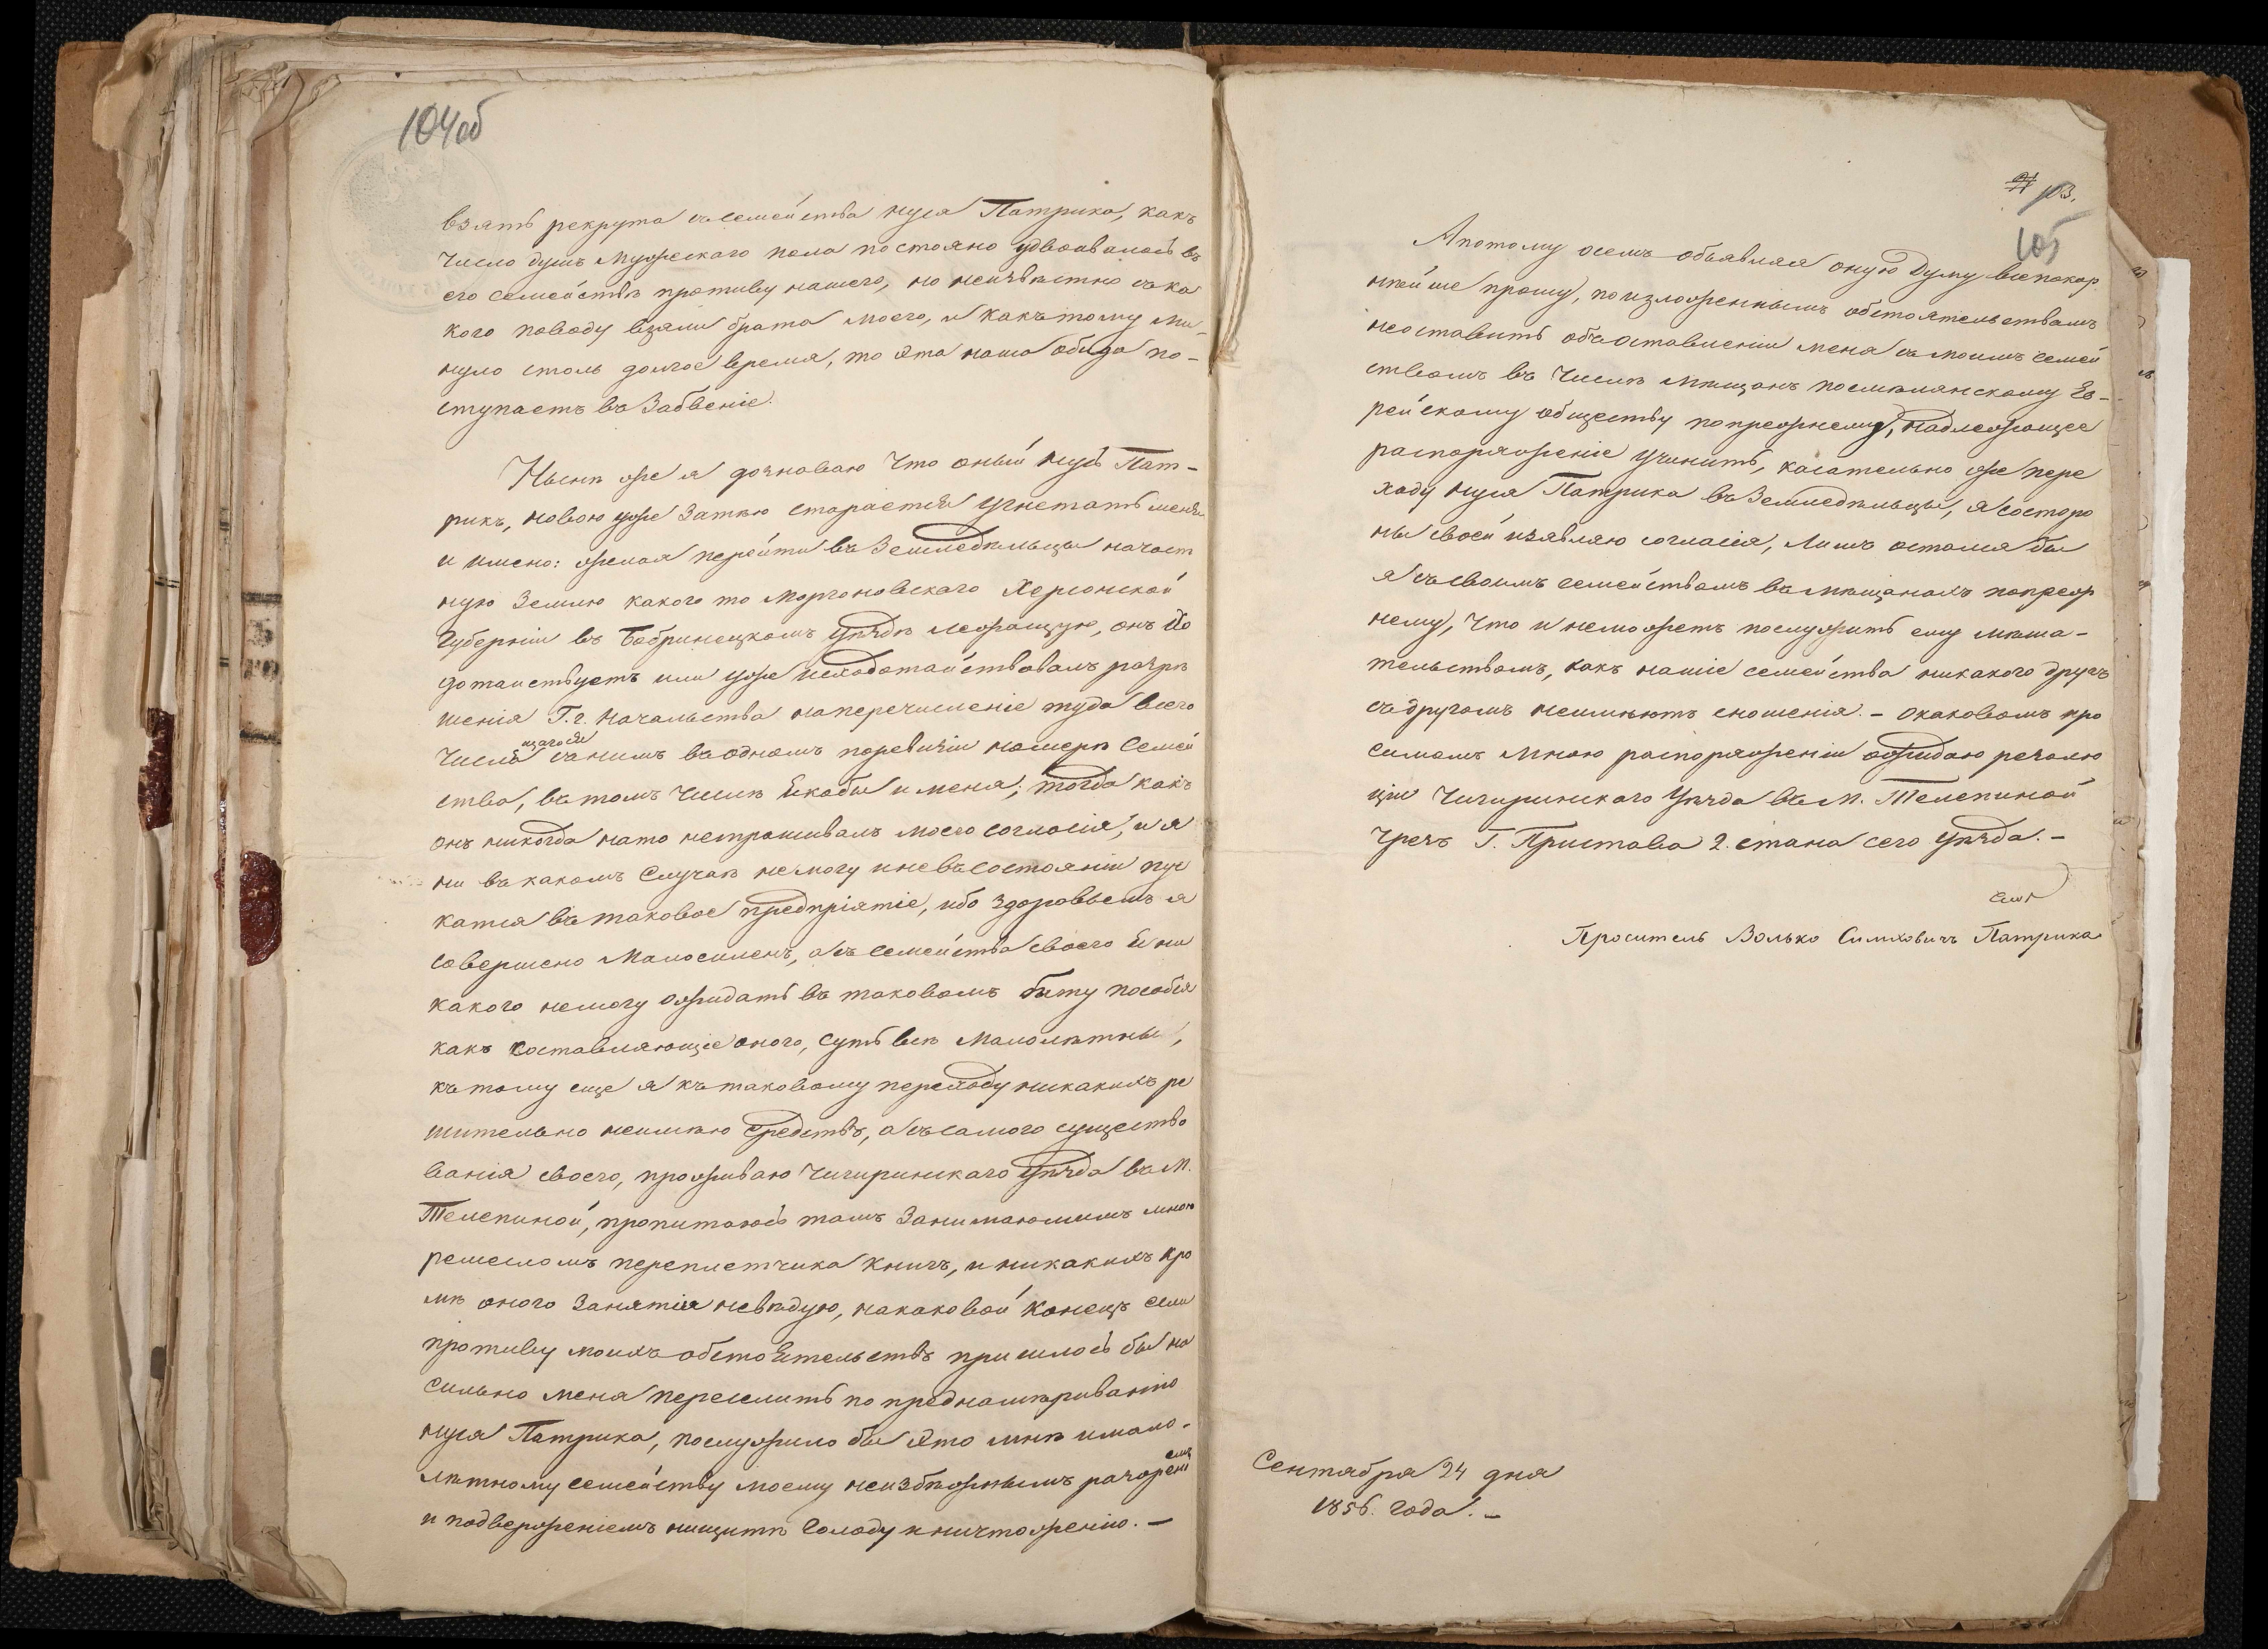 104об
взять рекрута съ семейства Нуся Патрика, какъ
число душъ мужескаго пола постояно удвоивалось въ
его семействѣ противу нашего, но неизвѣстно съ ка
кого поводу взяли брата моего, и какъ тому ми-
нуло столь долгое время, то эта наша обида по-
ступаетъ въ Забвеніе.
Нынѣ же я дознаваю что оный Нусь Пат-
рикъ, новою уже Затѣю старается угнетать меня
и имено: желая перейти въ Земледѣльцы на част
ную Землю какого то Моргоновскаго Херсонской
Губерніи въ Бобринецкомъ уѣздѣ лежащую, онъ Хо
датайствуетъ или уже исходотайствовалъ разрѣ
шенія Г.г. Начальства на перечисленіе туда всего
числа съ нимъ въ одномъ поревизіи номерѣ Семей
ства, въ томъ числѣ Якобы и меня; тогда какъ
онъ никогда на то нетрашивалъ моего согласія, и я
ни въ какомъ Случаѣ не могу и не въ состояніи пус
катся въ таковое предпріятіе, ибо здоровьемъ я
совершено Малосиленъ, а съ семейства своего Я ни
какого немогу ожидать въ таковомъ быту пособія
какъ составляющіе оного, суть всѣ Малолѣтны,
къ тому еще я къ таковому переходу никакихъ рѣ
шительно неимѣю средствъ, а съ самого существо
ванія своего, проживаю Чигиринскаго уѣзда въ М.
Телепиной, пропитаюсь тамъ Занимаюмимъ мною
ремесломъ переплетчика Книгъ, и никакихъ кро
мѣ оного Занятія невѣдую, на каковой Конецъ если
противу моихъ обстоятельствъ пришлось бы на
сильно меня переселить по преднамѣриванію
Нуся Патрика, послужило бы это мнѣ и мало-
лѣтному семейству моему неизбѣжнымъ разореніемъ
и подверженіемъ нищитѣ Голоду и ничтоженію. —
103.
105
А потому осемъ объявляя оную Думу всепокор
нѣйше прошу, по изложеннымъ обстоятельствамъ
неоставить объ оставленіи меня съ моимъ семей
ствомъ въ числѣ мѣщанъ посмѣлянскому Ев-
рейскому обществу попрежнему, надлежащее
распоряженіе учинить, касательно же пере
ходу Нуся Патрика въ Земледѣльцы, я состоро
ны своей изявляю согласія, Лишъ остался бы
я съ своимъ семействомъ въ мѣщанахъ попреж
нему, что и неможетъ послужить ему мѣша-
тельствомъ, какъ нашіе семейства никакого другъ
съ другомъ неимѣютъ сношенія. — окаковомъ про
симомъ мною распоряженіи ожидаю резолю
ціи Чигиринскаго уѣзда въ М. Телепиной
Чрезъ Г. Пристава 2. стана сего уѣзда. —
Проситель Волько Симховичъ Патрика
Сентября 24 дня
1856. года. —